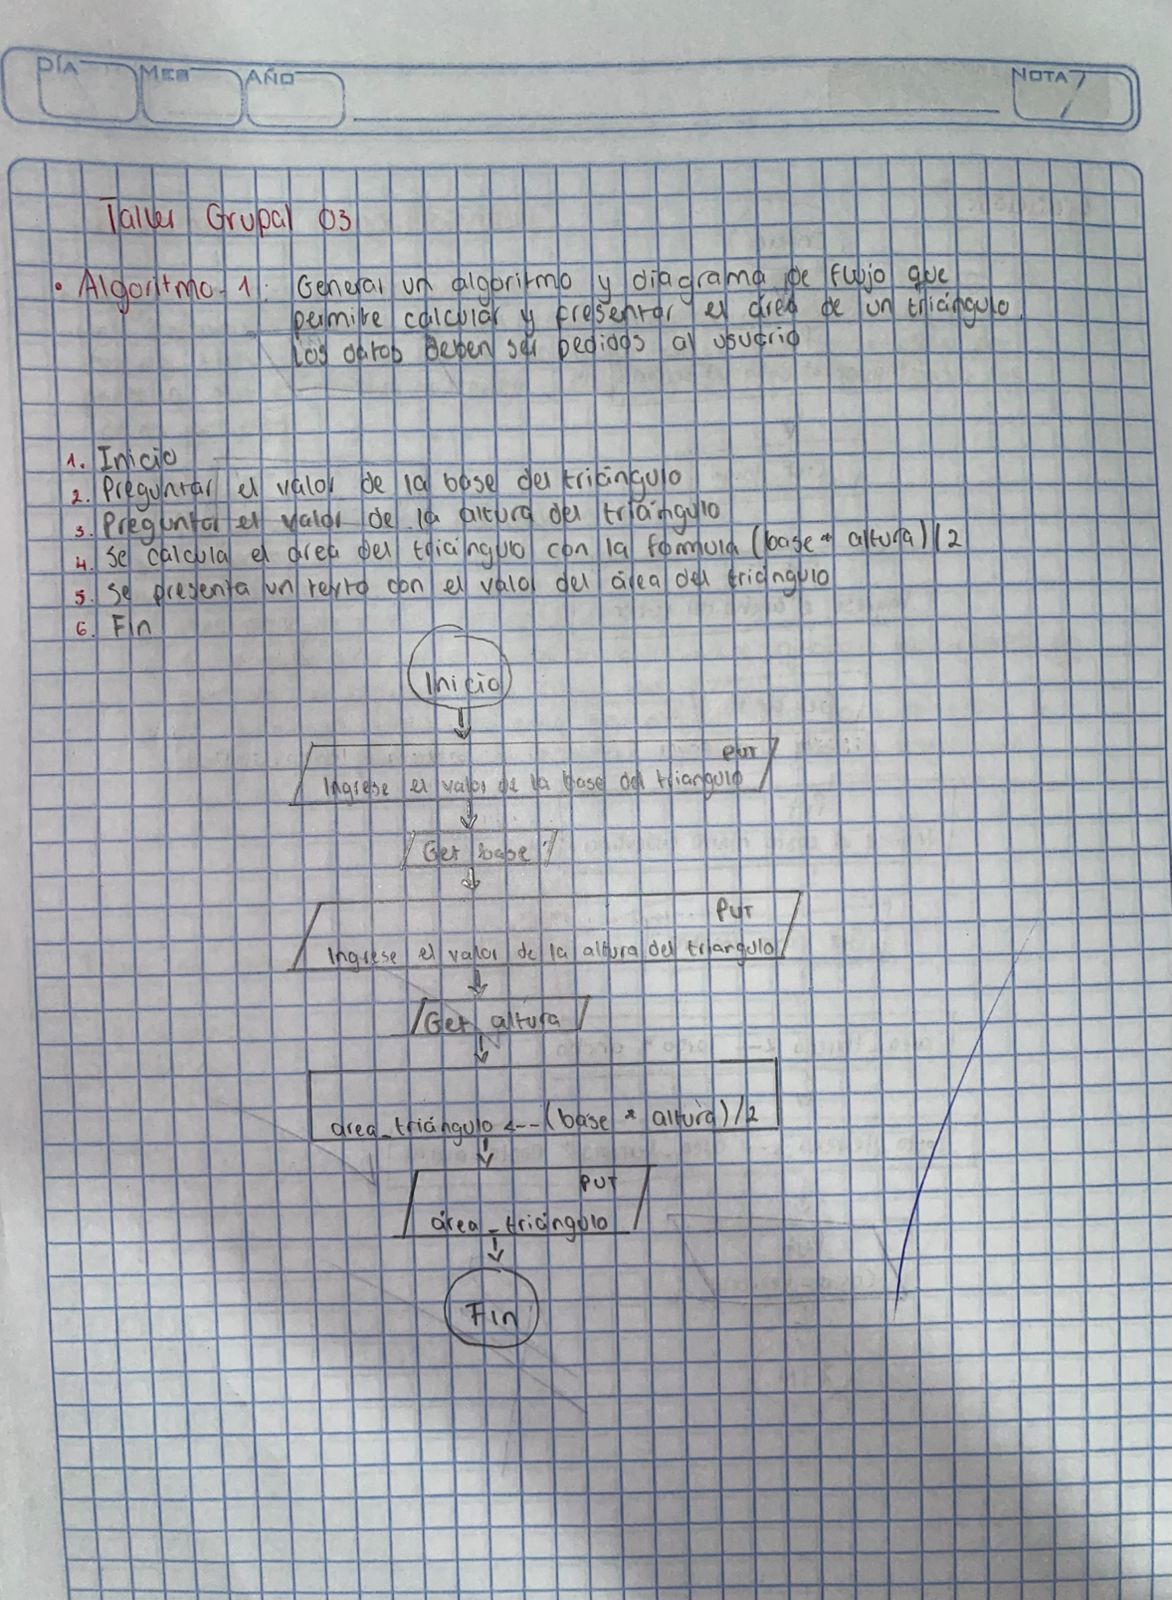 DÍA MES AÑO NOTA
Taller Grupal 03
• Algoritmo 1: Generar un algoritmo y diagrama de flujo que
permite calcular y presentar el área de un triángulo.
Los datos deben ser pedidos al usuario
1. Inicio
2. Preguntar el valor de la base del triángulo
3. Preguntar el valor de la altura del triángulo
4. Se calcula el área del triángulo con la formula (base * altura)/2
5. Se presenta un texto con el valor del área del triángulo
6. Fin
Inicio
PUT
Ingrese el valor de la base del triangulo
Get base
PUT
Ingrese el valor de la altura del triangulo
Get altura
área_triángulo <-- (base * altura)/2
PUT
área_triángulo
Fin